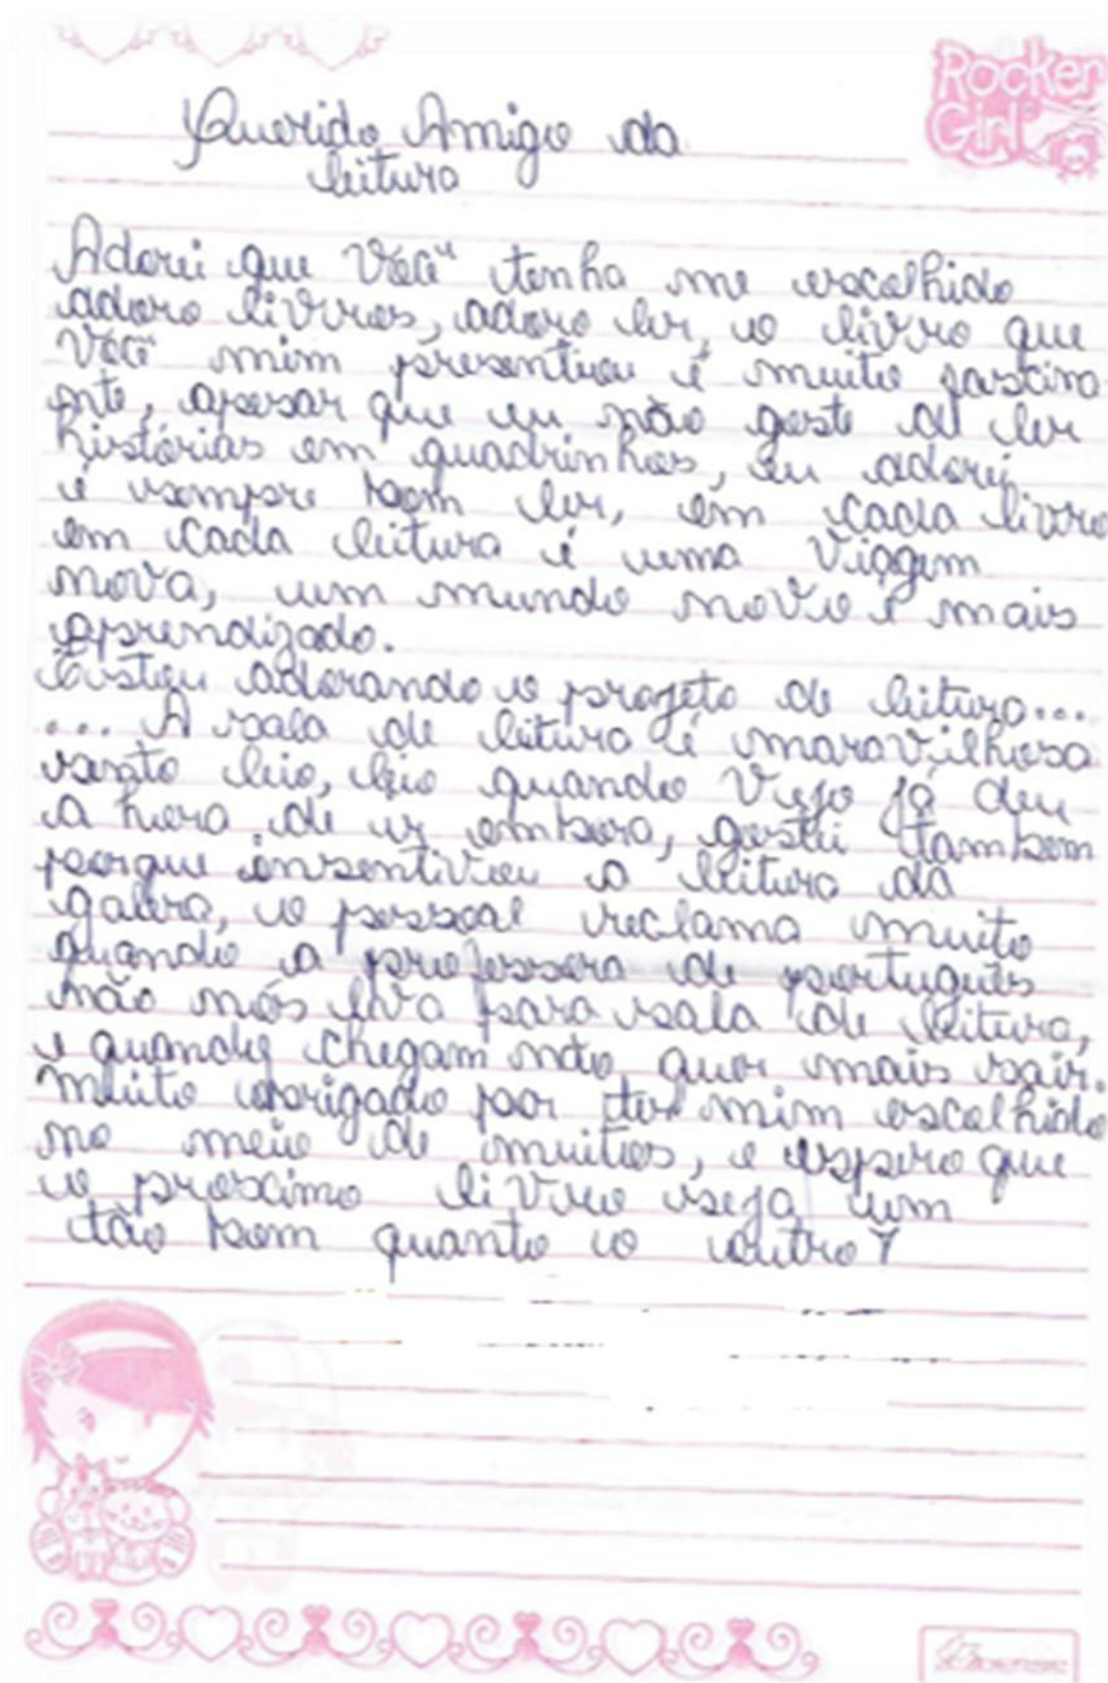 Rocker
Girl
Querido Amigo da
leitura
Adorei que você tenha me escolhido
adoro livros, adoro ler, o livro que
você mim presentiou é muito fascina
nte, apesar que eu não goste de ler
histórias em quadrinhos, eu adorei
é sempre bom ler, em cada livro
em cada leitura é uma viagem
nova, um mundo novo e mais
aprendizado.
Estou adorando o projeto de leitura...
... A sala de leitura é maravilhosa
sento leio, leio quando vejo já deu
a hora de ir embora, gostei tambem
porque insentivou a leitura da
galera, o pessoal reclama muito
quando a professora de português
não nós leva para sala de leitura,
e quando chegam não quer mais sair.
Muito obrigado por ter mim escolhido
no meio de muitos, e espero que
o proximo livro seja um
tão bom quanto o outro?